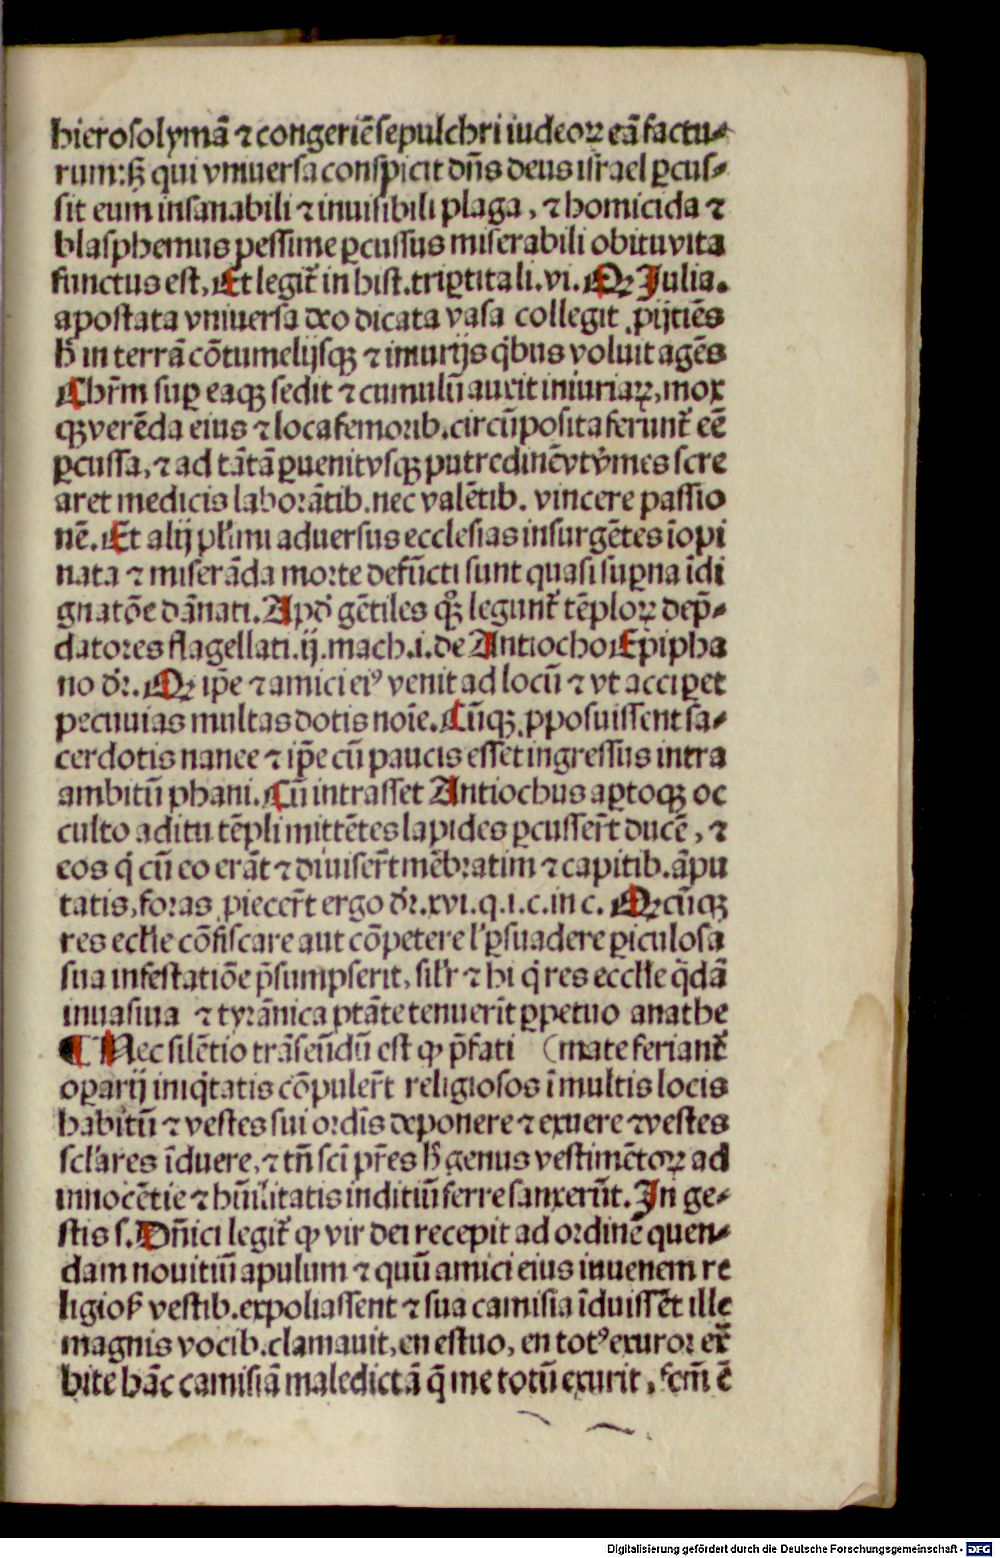 hierosolymā ⁊ congeriē sepulchri iudeoꝝ eā factu⸗
rum: ꝫ qui vniuersa conspicit dn̄s deus isrl̄ael ꝑcus⸗
sit eum insanabili ⁊ inuisibili plaga, ⁊ homicida ⁊
blasphemus pessime ꝑcussus miserabili obitu vita
functus est, Et legit᷑ in hist. triꝑtita li. vi. Qꝫ Julia.
apostata vniuersa deo dicata vasa collegit ꝓijciēs
hͦ in terrā cōtumelijsqꝫ ⁊ iniurijs qͥbus voluit agēs
Chrm̄ suꝑ eaqꝫ sedit ⁊ cumulū auxit iniuriaꝝ, mox
qꝫ verēda eius ⁊ loca femorib. circūposita ferunt᷑ eē
ꝑcussa, ⁊ ad tātā ꝑuenit vsqꝫ putredinē vt v̓mes scre
aret medicis laborātib. nec valētib. vincere passio
nē. Et alij pl̓imi aduersus ecclesias insurgētes īopi
nata ⁊ miserāda morte defūcti sunt quasi suꝑna īdi
gnatōe dānati. Apd̓ gētiles qͦꝫ legunt᷑ tēploꝝ dep̄⸗
datores flagellati. ij. mach. i. de Antiocho Epipha
no dr̄. Qꝫ ip̄e ⁊ amici eiꝰ venit ad locū ⁊ vt acciꝑet
pecunias multas dotis noīe. Cūqꝫ ꝓposuissent sa⸗
cerdotis nanee ⁊ ip̄e cū paucis esset ingressus intra
ambitū phani. Cū intrasset Antiochus aꝑtoqꝫ oc
culto aditu tēpli mittētes lapides ꝑcusser̄t ducē, ⁊
eos qͥ cū eo erāt ⁊ diuiser̄t mēbratim ⁊ capitib. āpu
tatis, foras ꝓiecer̄t ergo dr̄. xvi. q. i. c. in c. Qꝫcūqꝫ
res eccl̄ie cōfiscare aut cōpetere l̓ ꝑsuadere ꝑiculosa
sua infestatiōe p̄sumpserit, sil̓r ⁊ hi qͥ res eccl̄ie q̄dā
inuasiua ⁊ tyrānica ptāte tenuerīt ꝑpetuo anathe
¶ Nec silētio trāseūdū est ꝙ p̄fati (mate feriant᷑
oꝑarij iniqͥtatis cōpuler̄t religiosos ī multis locis
habitū ⁊ vestes sui ordīs deponere ⁊ exuere ⁊ vestes
scl̓ares īduere, ⁊ tn̄ sci̅ pr̄es hͦ genus vestimētoꝝ ad
innocētie ⁊ hūilitatis inditiū ferre sanxerūt. In ge⸗
stis s. Dn̄ici legit᷑ ꝙ vir dei recepit ad ordinē quen⸗
dam nouitiū apulum ⁊ quū amici eius iuuenem re
ligios̄ vestib. expoliassent ⁊ sua camisia īduissēt ille
magnis vocib. clamauit, en estuo, en totꝰ exuror ex̄
hite hāc camisiā maledictā q̄ me totū exurit, scm̄ ē
Digitalisierung gefördert durch die Deutsche Forschungsgemeinschaft - DFG